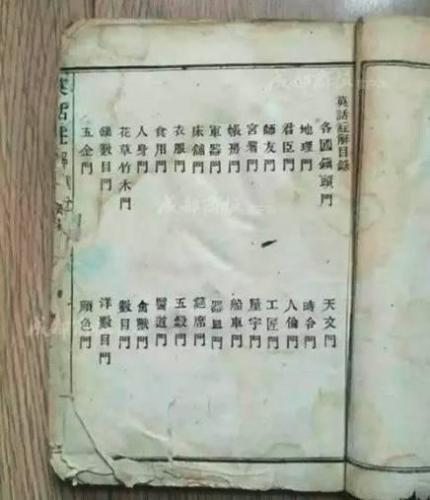 英話註解目錄
各國鎮頭門 天文門
地理門 時令門
君臣門 人倫門
師友門 工匠門
宮署門 屋宇門
帳房門 船車門
軍器門 器皿門
床舖門 筵席門
衣服門 五穀門
食用門 醫道門
人身門 禽獸門
花草竹木門 數目門
數目門 洋數目門
五金門 顏色門
英話註解
成都商报